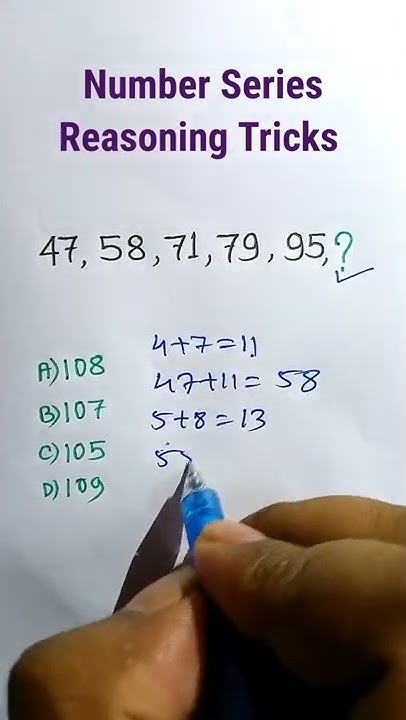 Number Series
Reasoning Tricks
47, 58, 71, 79, 95, ?
A) 108
B) 107
C) 105
D) 109
4+7=11
47+11= 58
5+8=13
5